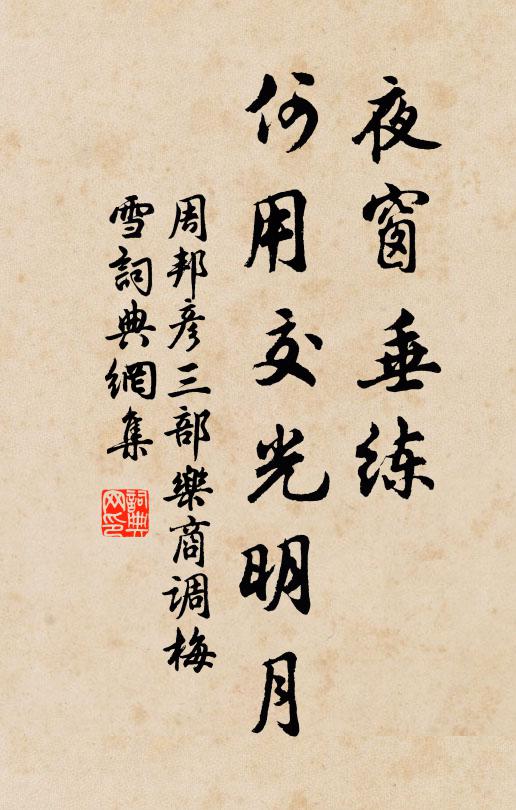 夜窗垂练
何用交光明月
周邦彦三部樂商调梅
雪詞典網集
詞典
网印